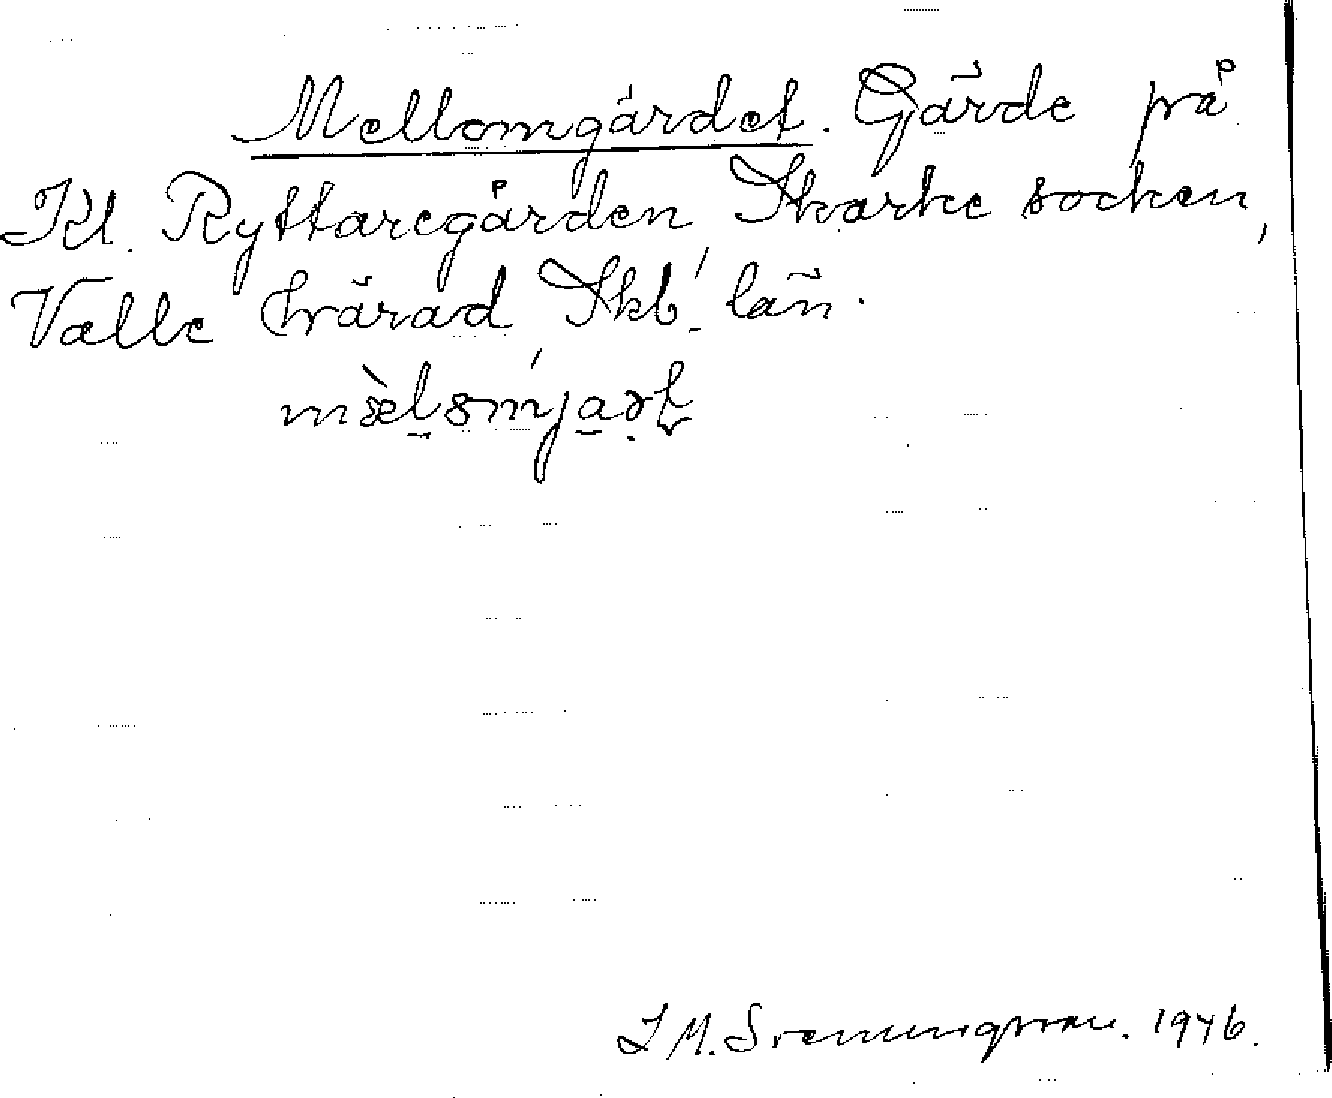 Mellomgärdet. Gärde på
Kl. Ryttaregården Skarke socken,
Valle härad Skb. län.
J M. Svenungsson. 1946.